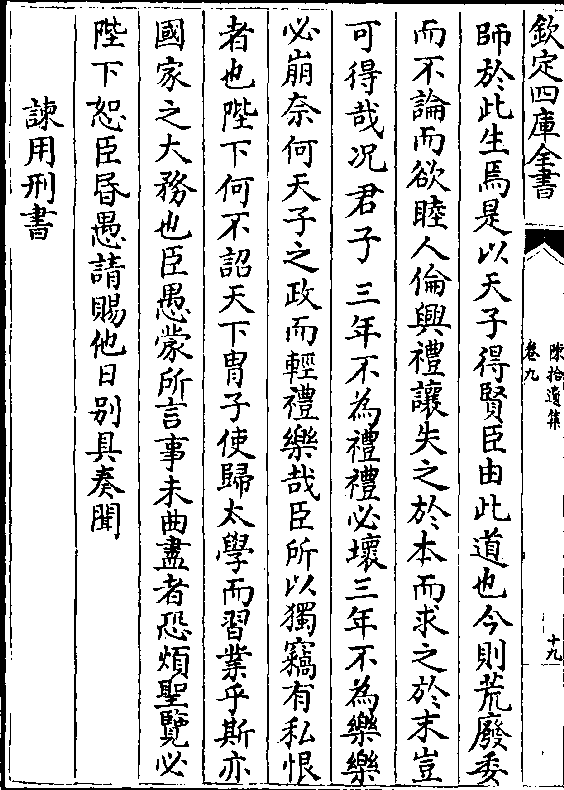 欽定四庫全書
陳拾遺集
卷九
十九
師於此生焉是以天子得賢臣由此道也今則荒廢委
而不論而欲睦人倫興禮讓失之於本而求之於末豈
可得哉况君子三年不為禮禮必壞三年不為樂樂
必崩奈何天子之政而輕禮樂哉臣所以獨竊有私恨
者也陛下何不詔天下胄子使歸太學而習業乎斯亦
國家之大務也臣愚蒙所言事未曲盡者恐煩聖覽必
陛下恕臣昏愚請賜他日別具奏聞
諫用刑書